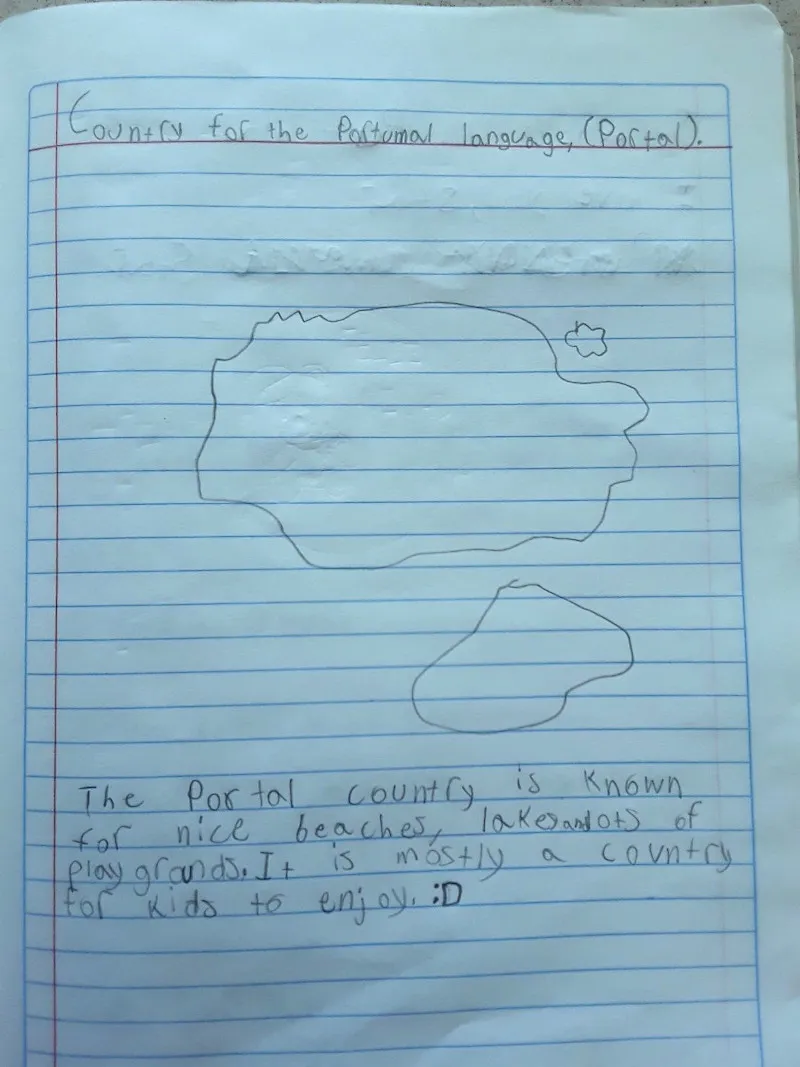 Country for the Portumal language, (Portal).
The Portal country is known
for nice beaches, lakes and ots of
play grands. It is mostly a country
for kids to enjoy. :D